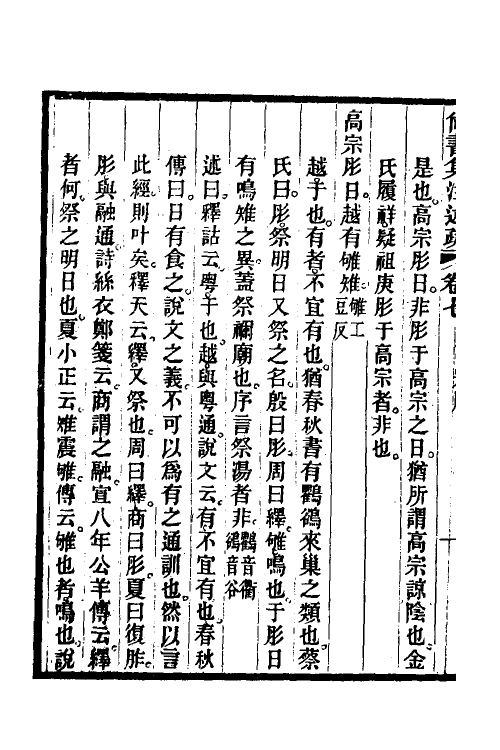 是也。高宗肜日。非肜于高宗之日。猶所謂高宗諒陰也。金
氏履祥疑祖庚肜于高宗者。非也。
高宗肜日越有雊雉雊工豆反
越于也。有者不宜有也。猶春秋書有鸜鵒來巢之類也。蔡
氏曰。肜祭明日又祭之名。殷曰肜。周曰繹。雊鳴也。于肜日
有鳴雉之異。蓋祭禰廟也。序言祭湯者非。鸜音衢鵒音谷
述曰。釋詁云。粤于也。越與粤通。說文云。有不宜有也。春秋
傳曰。日有食之。說文之義。不可以爲有之通訓也。然以言
此經。則叶矣。釋天云。繹又祭也。周曰繹。商曰肜。夏曰復胙。
肜與融通。詩絲衣鄭箋云。商謂之融。宣八年公羊傳云。繹
者何。祭之明日也。夏小正云。雉震雊。傳云。雊也者鳴也。說